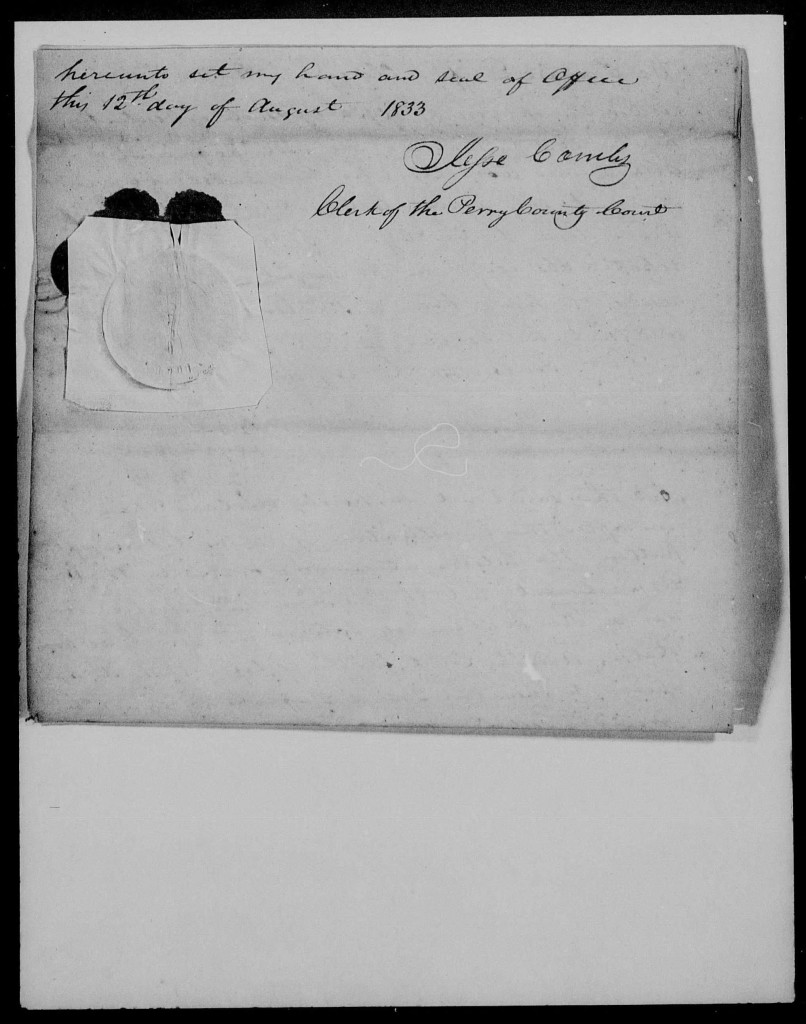 hereunto set my hand and seal of Office
this 12th day of August 1833
Jesse Comly
Clerk of the Perry County Court